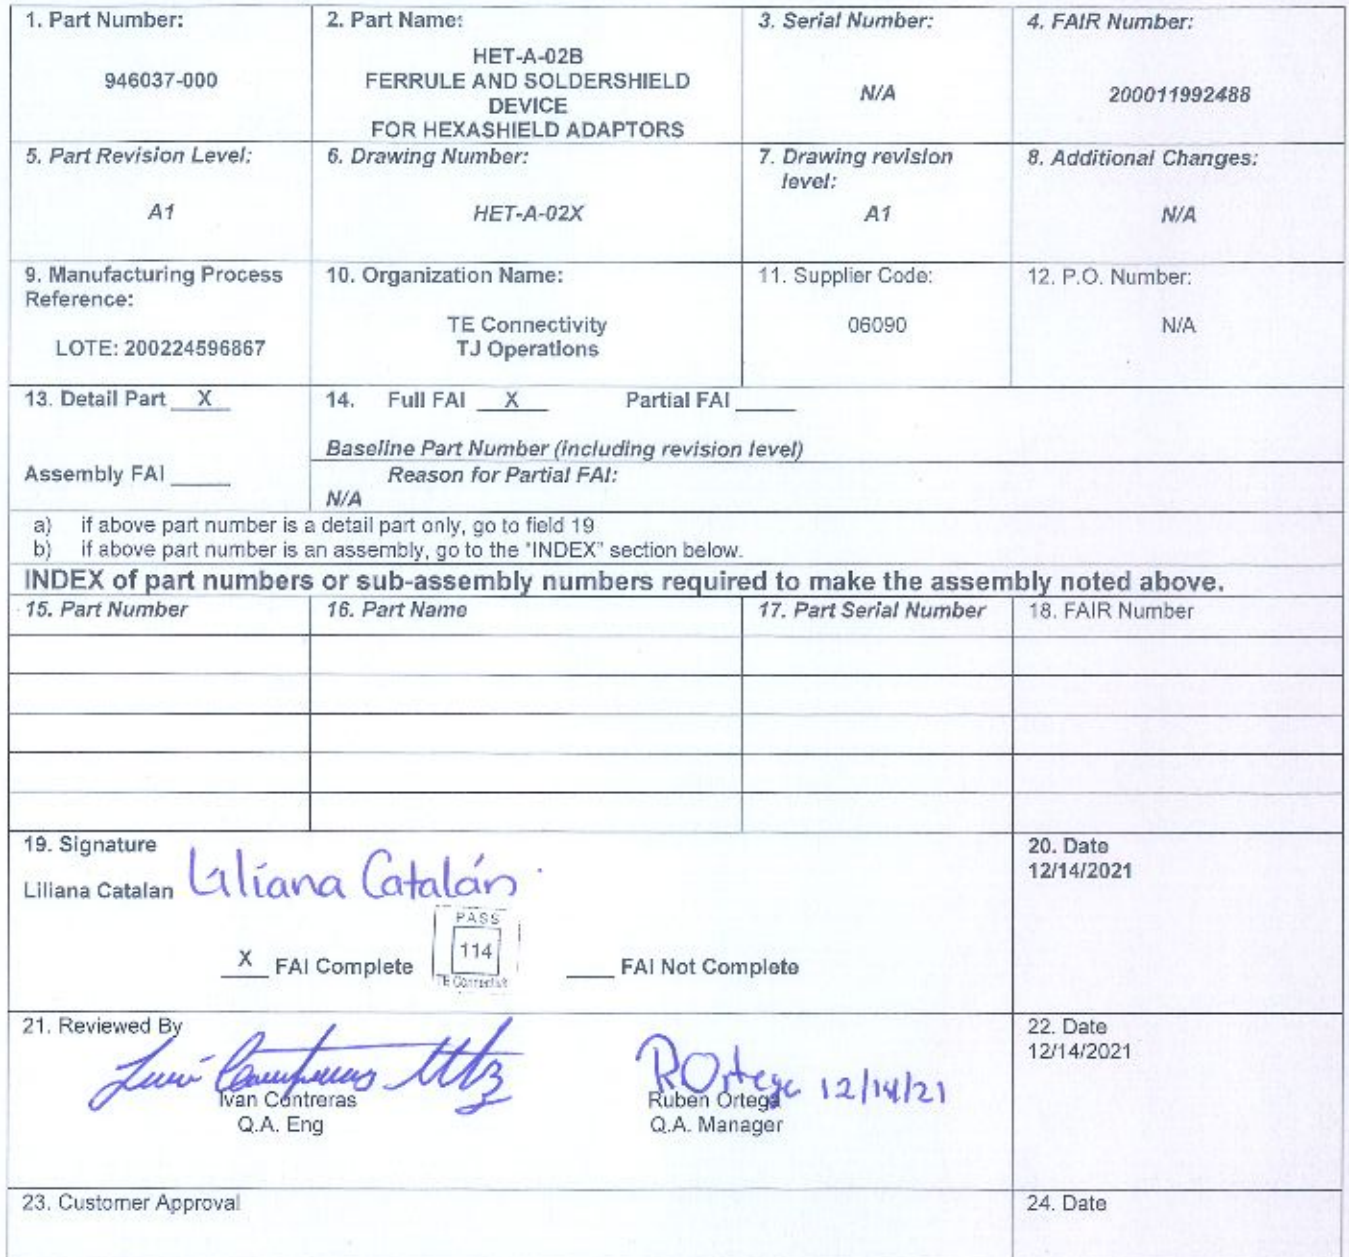 1. Part Number:
946037-000
2. Part Name:
HET-A-02B
FERRULE AND SOLDERSHIELD
DEVICE
FOR HEXASHIELD ADAPTORS
3. Serial Number:
N/A
4. FAIR Number:
200011992488
5. Part Revision Level:
A1
6. Drawing Number:
HET-A-02X
7. Drawing revision
level:
A1
8. Additional Changes:
N/A
9. Manufacturing Process
Reference:
LOTE: 200224596867
10. Organization Name:
TE Connectivity
TJ Operations
11. Supplier Code:
06090
12. P.O. Number:
N/A
13. Detail Part X
Assembly FAI
14. Full FAI X Partial FAI
Baseline Part Number (including revision level)
Reason for Partial FAI:
N/A
a) if above part number is a detail part only, go to field 19
b) if above part number is an assembly, go to the "INDEX" section below.
INDEX of part numbers or sub-assembly numbers required to make the assembly noted above.
15. Part Number
16. Part Name
17. Part Serial Number
18. FAIR Number
19. Signature
Liliana Catalan Liliana Catalán
X FAI Complete
PASS
114
TE Connectivit
FAI Not Complete
20. Date
12/14/2021
21. Reviewed By
Ivan Contreras
Q.A. Eng
ROrtega 12/14/21
Ruben Ortega
Q.A. Manager
22. Date
12/14/2021
23. Customer Approval
24. Date